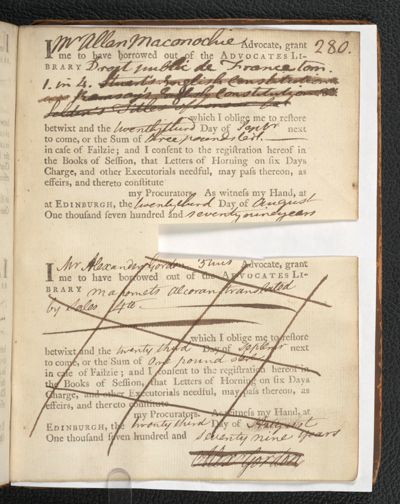 280.
I Mr Allan Maconochie Advocate, grant
me to have borrowed out of the ADVOCATES LI-
BRARY Droit public de France tom.
1. in 4.
which I oblige me to restore
betwixt and the twenty third Day of Septr next
to come, or the Sum of three pounds ster
in case of Failzie; and I consent to the registration hereof in
the Books of Session, that Letters of Horning on six Days
Charge, and other Executorials needful, may pass thereon, as
effeirs, and thereto constitute
my Procurators. As witness my Hand, at
at EDINBURGH, the twenty third Day of August
One thousand seven hundred and seventy nine years
I Mr Alexander Gordon Advocate, grant
me to have borrowed out of the ADVOCATES LI-
BRARY Mahomets Alcoran translated
by Sales 4to.
which I oblige me to restore
betwixt and the twenty third Day of Septemr next
to come, or the Sum of One pound
in case of Failzie; and I consent to the registration hereof in
the Books of Session, that Letters of Horning on six Days
Charge, and other Executorials needful, may pass thereon, as
effeirs, and thereto constitute
my Procurators. As witness my Hand, at
EDINBURGH, the twenty third Day of August
One thousand seven hundred and seventy nine years
Alexr Gordon